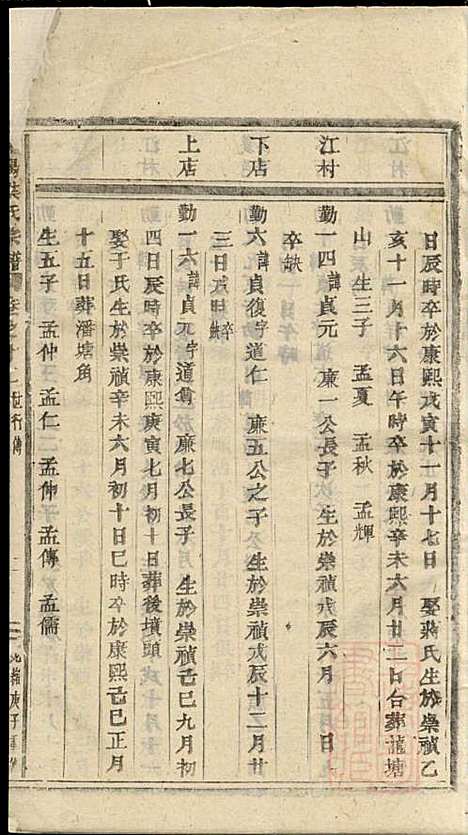 日辰時卒於康熙戊寅十一月十七日 娶蔣氏生於崇禎乙
亥十一月十六日午時卒於康熙辛未六月廿二日合葬龍塘
山 生三子 孟夏 孟秋 孟輝
江村
勤一四諱貞元 廉一公長子 生於崇禎戊辰六月
卒缺
下店
勤六諱貞復字道仁 廉五公之子 生於崇禎戊辰十二月廿
三日 時 卒
上店
勤一六諱貞 字道 廉七公長子 生於崇禎己巳九月初
四日辰時卒於康熙庚寅七月初十日葬後墳頭
娶于氏生於崇禎辛未六月初十日巳時卒於康熙己巳正月
十五日葬潘塘角
生五子 孟仲 孟仁 孟伸 孟傳 孟儒
氏宗譜
世行傳
庚子